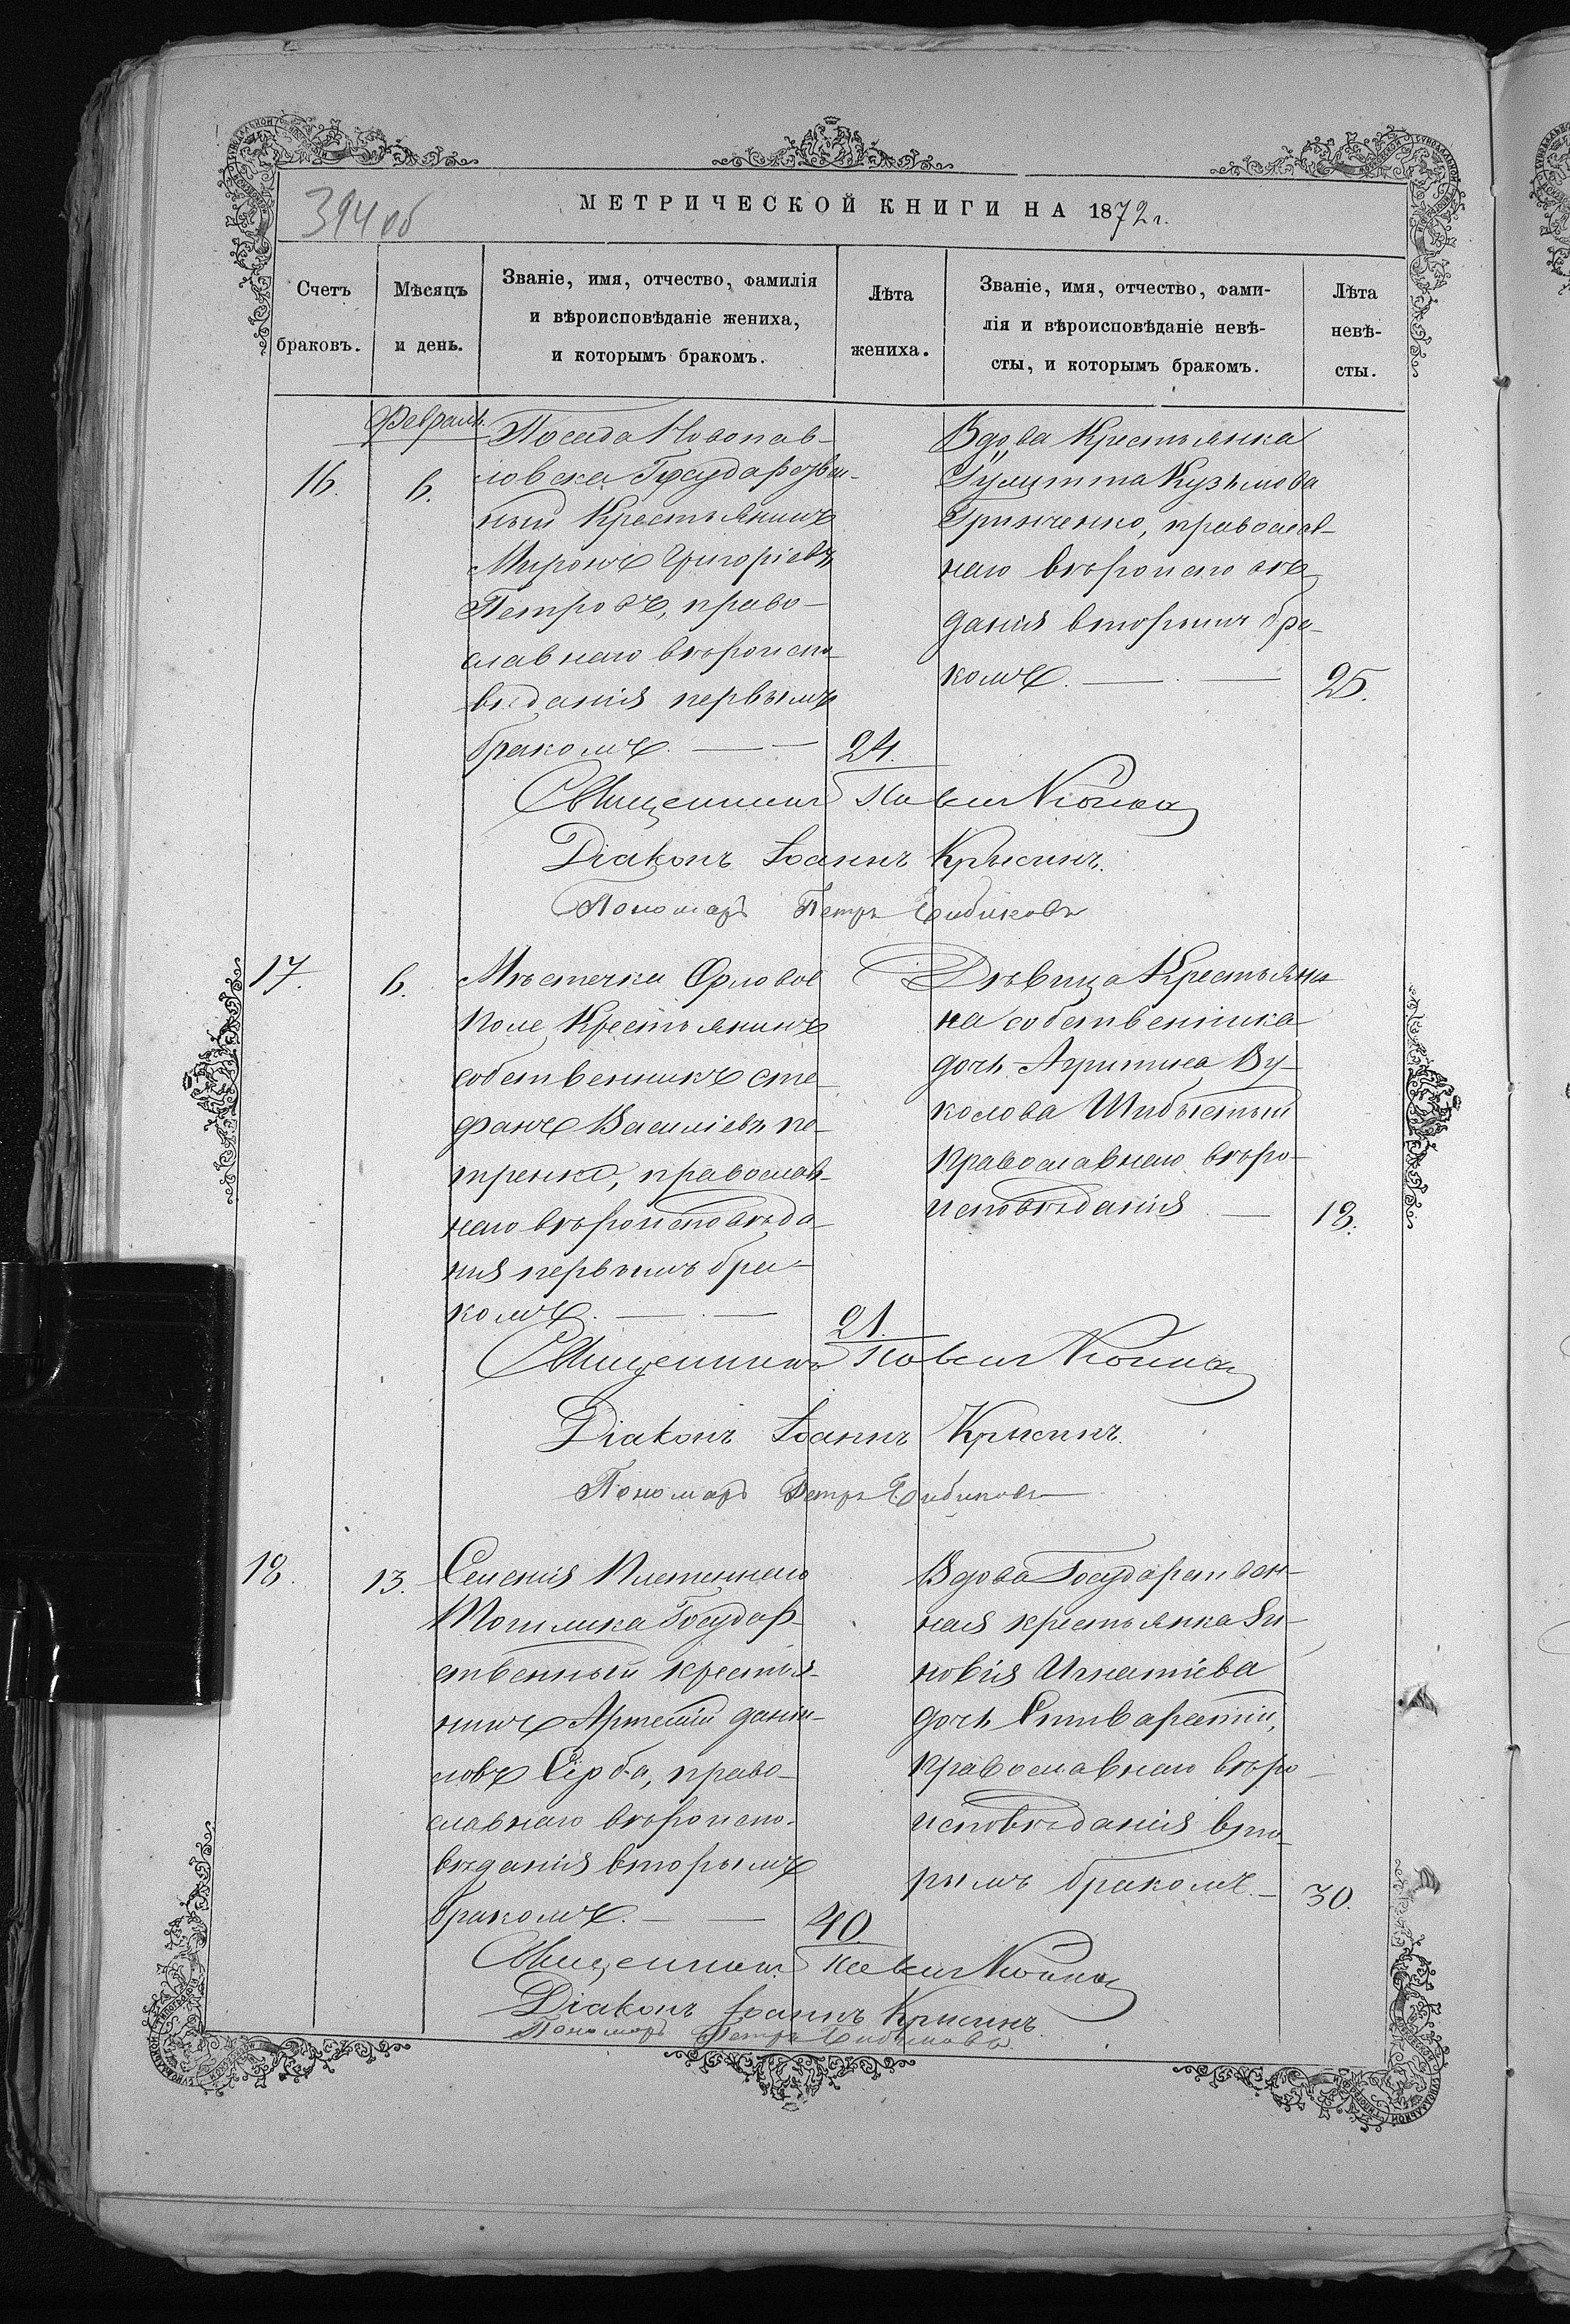 394 об
МЕТРИЧЕСКОЙ КНИГИ НА 1872 г.
Счетъ браковъ.
Мѣсяцъ и день.
Званіе, имя, отчество, фамилія
и вѣроисповѣданіе жениха,
и которымъ бракомъ.
Лѣта жениха.
Званіе, имя, отчество, фами-
лія и вѣроисповѣданіе невѣ-
сты, и которымъ бракомъ.
Лѣта невѣ-
сты.
Февраль
16.
6.
Посада Новопав-
ловска Государствен-
ный Крестьянинъ
Миронъ Григоріевъ
Петровъ, право-
славнаго вѣроиспо-
вѣданія первымъ
бракомъ.
24.
Вдова Крестьянка
Кузьмова
Гринченко, православ-
наго вѣроисповѣ
данія вторымъ бра-
комъ.
25.
Священникъ
Діаконъ Іоаннъ Крысинъ.
Пономарь Петръ
17.
6.
Мѣстечка Орловое
Поле Крестьянинъ
собственникъ Сте-
фанъ Василіевъ Пе-
тренко, православ-
наго вѣроисповѣда-
нія первымъ бра-
комъ.
21.
Дѣвица Крестьяни
на собственника
дочь Ву-
колова
православнаго вѣро-
исповѣданія
18.
Священникъ
Діаконъ Іоаннъ Крысинъ.
Пономарь Петръ
18.
13.
Селенія Плетеннаго
Ташлика Государ-
ственный крестья-
нинъ Артемій Дани-
ловъ Серба, право-
славнаго вѣроиспо-
вѣданія вторымъ
бракомъ.
40.
Вдова Государствен-
ная крестьянка Зи-
новія Игнатіева
дочь
православнаго вѣро-
исповѣданія вто-
рымъ бракомъ.
30.
Священникъ
Діаконъ Іоаннъ Крысинъ.
Пономарь Петръ